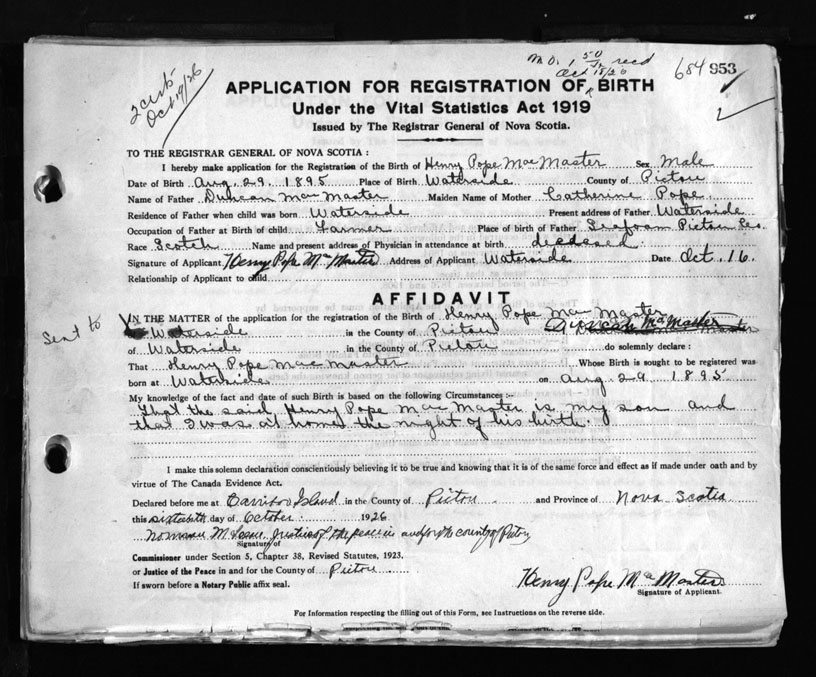 M.O. 1 50 recd
Oct 18/26
684 953
2 certs
Oct 19/26
APPLICATION FOR REGISTRATION OF BIRTH
Under the Vital Statistics Act 1919
Issued by The Registrar General of Nova Scotia.
TO THE REGISTRAR GENERAL OF NOVA SCOTIA :
I hereby make application for the Registration of the Birth of Henry Pope MacMaster Sex Male
Date of Birth Aug. 29. 1895 Place of Birth Waterside County of Pictou
Name of Father Duncan MacMaster Maiden Name of Mother Catherine Pope
Residence of Father when child was born Waterside Present address of Father Waterside
Occupation of Father at Birth of child Farmer Place of birth of Father Seafoam Pictou Co.
Race Scotch Name and present address of Physician in attendance at birth deceased
Signature of Applicant Henry Pope McMaster Address of Applicant Waterside Date Oct. 16.
Relationship of Applicant to child
AFFIDAVIT
Sent to
IN THE MATTER of the application for the registration of the Birth of Henry Pope MacMaster
Waterside in the County of Pictou Duncan McMaster
of Waterside in the County of Pictou do solemnly declare :
That Henry Pope MacMaster Whose Birth is sought to be registered was
born at Waterside on Aug 29 1895
My knowledge of the fact and date of such Birth is based on the following Circumstances :-
That the said Henry Pope MacMaster is my son and
that I was at home the night of his birth.
I make this solemn declaration conscientiously believing it to be true and knowing that it is of the same force and effect as if made under oath and by
virtue of The Canada Evidence Act.
Declared before me at Island in the County of Pictou and Province of Nova Scotia
this sixteenth day of October 1926
Norman McLean, Justice of the peace in and for the county of Pictou
Signature of
Commissioner under Section 5, Chapter 38, Revised Statutes, 1923.
or Justice of the Peace in and for the County of Pictou
If sworn before a Notary Public affix seal.
Henry Pope McMaster
Signature of Applicant.
For Information respecting the filling out of this Form, see Instructions on the reverse side.